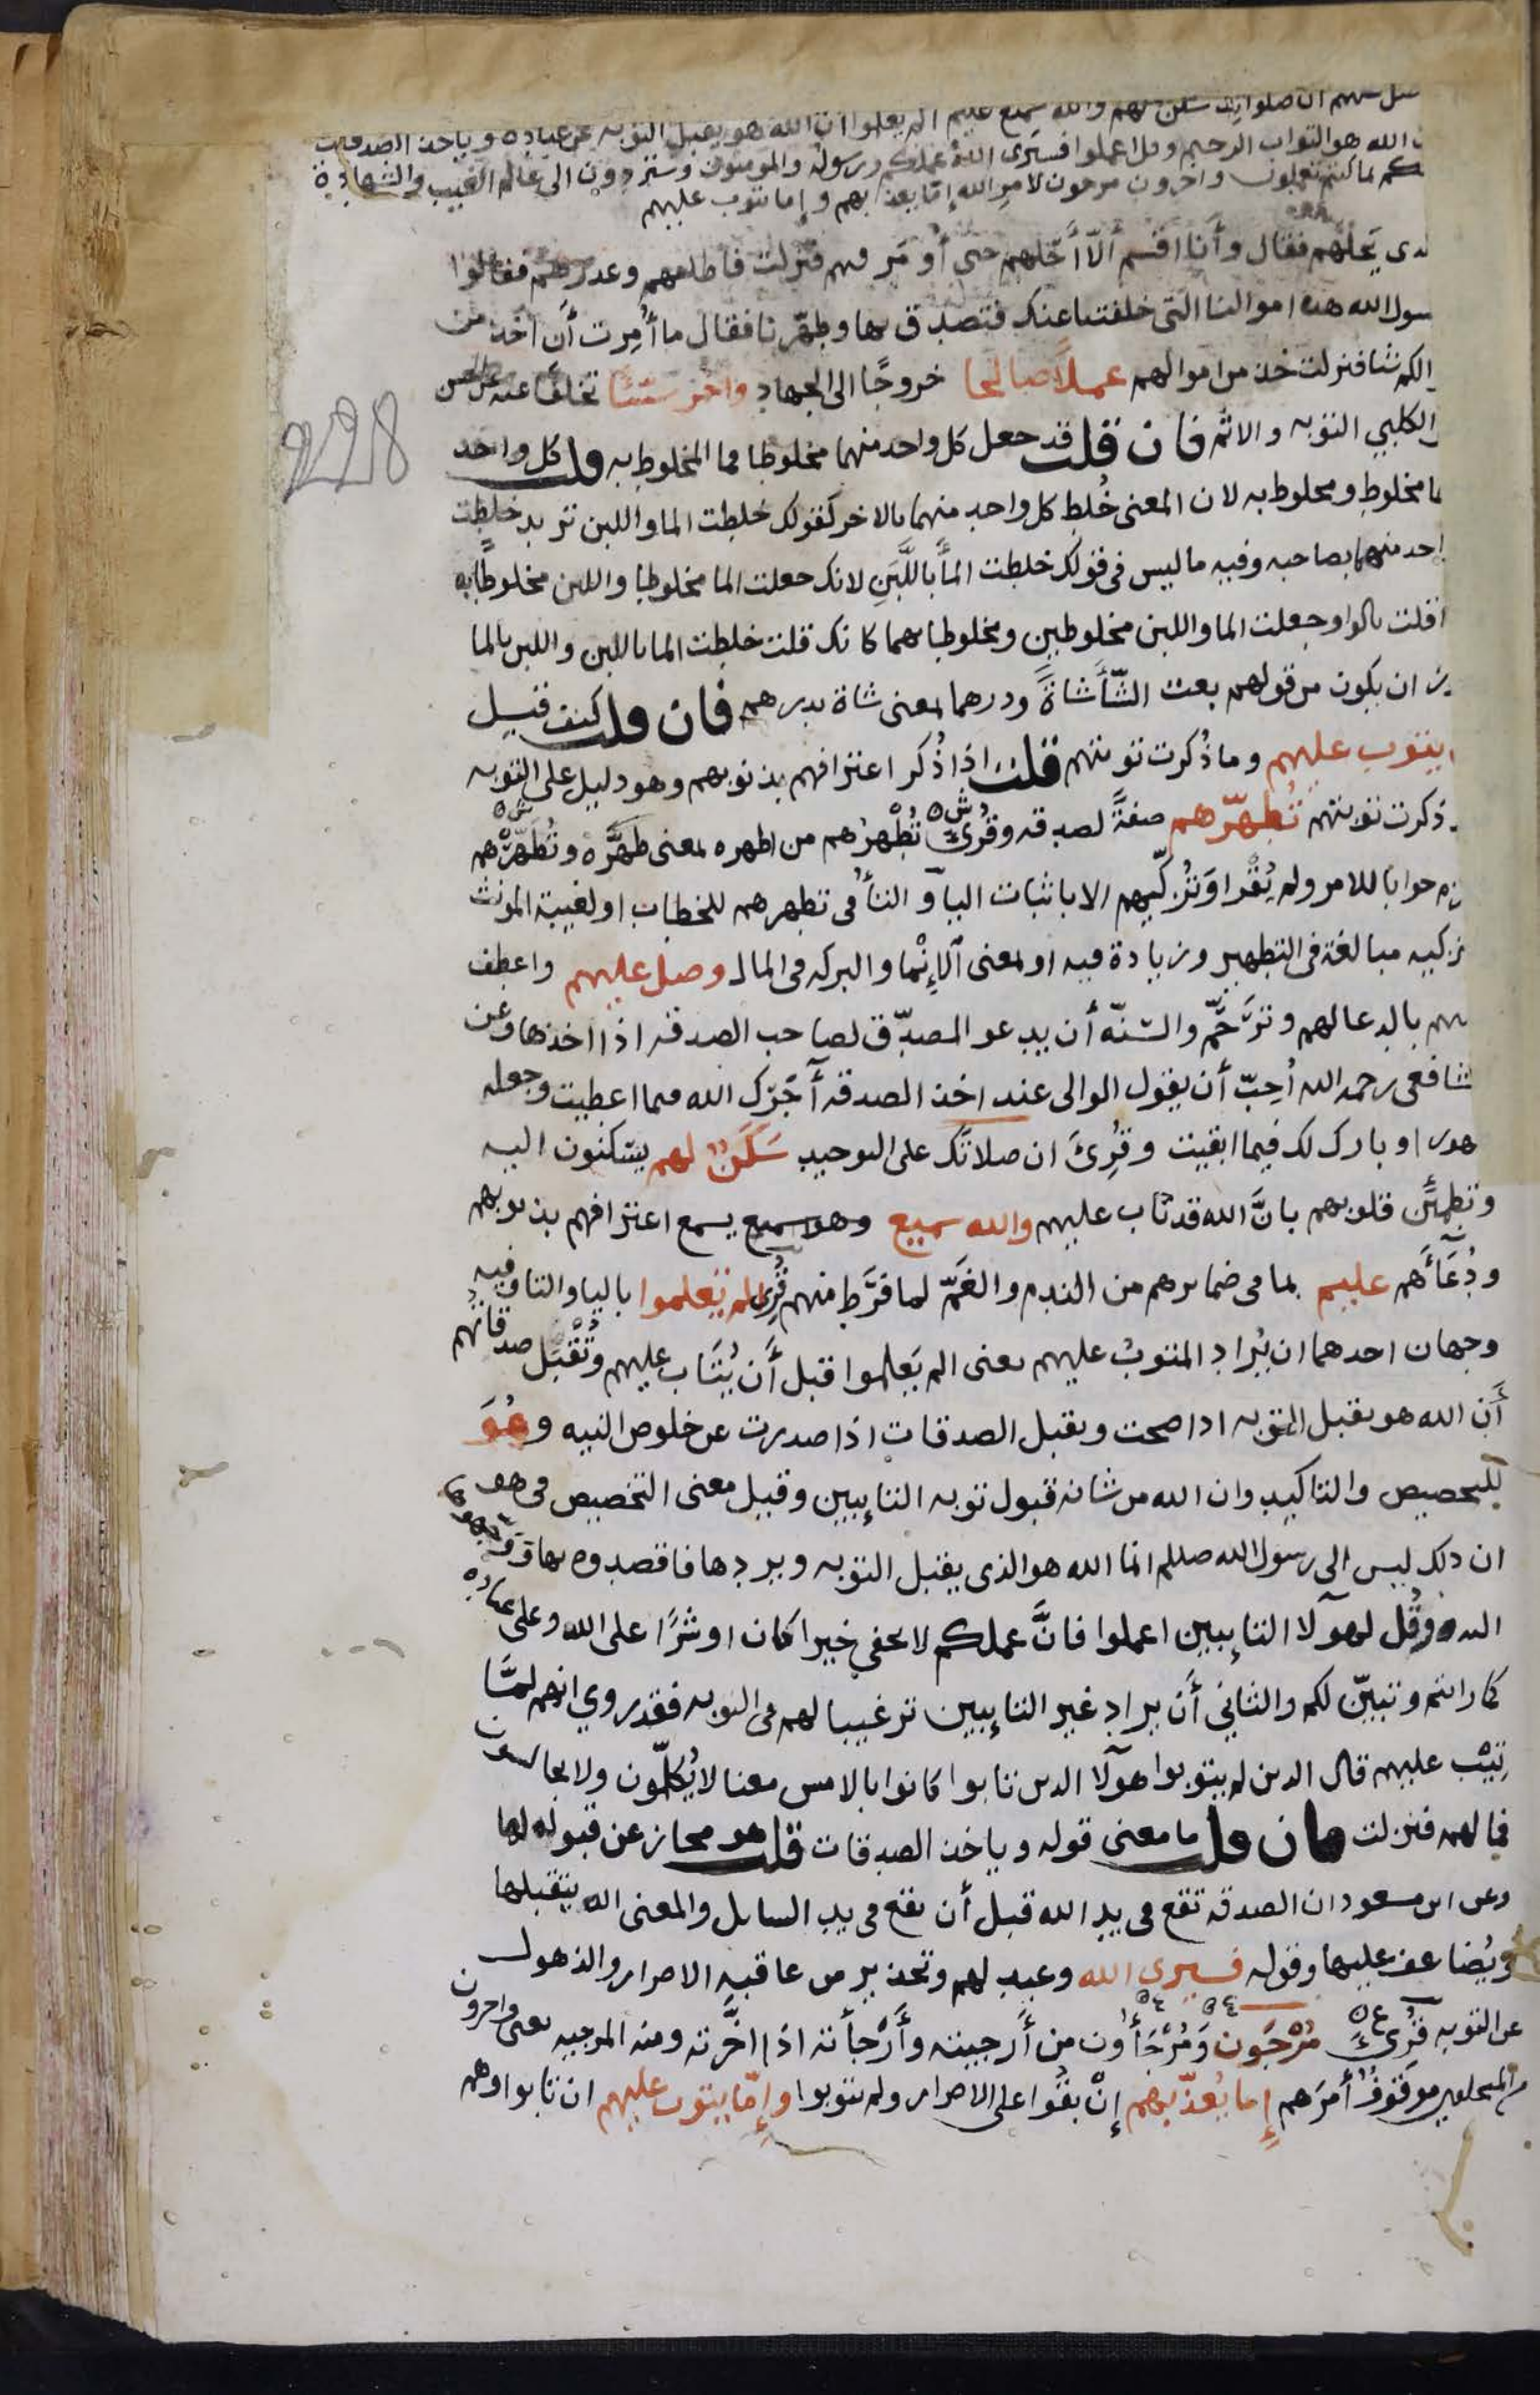 صل عليهم ان صلواتك سكن لهم والله سميع عليم الم يعلموا ان الله هو يقبل التوبه عن عباده وياخذ الصدقات
الله هو التواب الرحيم وقل اعملوا فسيرى الله عملكم ورسوله والمومنون وستردون الى عالم الغيب والشهادة
كم بما كنتم تعملون واخرون مرجون لامر الله إمّا يعذبهم وإما يتوب عليهم
لذى يَحلّهم فقال وأنا اقسم ألّا أحُلهم حتى أومَر فيهم فنزلت فاطلقهم وعذرهم فقالوا
سول الله هذه اموالنا التى خلفتنا عنك فتصدق بها وطهّرنا فقال ما أُمِرت أن اخذ من
الكم شيا فنزلت خذ من اموالهم عملاً صالحا خروجًا الى الجهاد واخر سيّئًا تخلفًا عنه عن الحسن
والكلبي التوبه والاثم فان قلت قد جعل كل واحد منهما مخلوطا فما المخلوط به قلت كل واحد
ما مخلوط ومخلوط به لان المعنى خُلط كل واحد منهما بالاخر كقولك خلطت الما واللبن تريد خلطت
احد منهما بصاحبه وفيه ما ليس فى قولك خلطت المأ باللَّبَنِ لانك جعلت الما مخلوطا واللبن مخلوطًا به
اقلت بالواو جعلت الما واللبن مخلوطين ومخلوطا بهما كانك قلت خلطت الما باللبن واللبن بالما
ز ان يكون من قولهم بعت الشّأ شاةً ودرهما بمعنى شاة بدرهم فان قلت كيف قيل
ا يتوب عليهم وما ذُكرت توبتهم قلت اذا ذُكر اعترافهم بذنوبهم وهو دليل على التوبه
ذكرت توبتهم تُطهّرهم صفةً لصدقه وقُرِئ تُطْهِرُهم من اطهره بمعنى طهَّرَه وتُطهّرْهم
زم جوابا للامر ولم يُقرا وَتُزكّيهم الا باثبات اليآ والتأ فى تطهرهم للخطاب او لغيبة المونث
زكيه مبالغة فى التطهير وزيادة فيه او بمعنى الإنْما والبركه فى المال وصل عليهم واعطف
هم بالدعا لهم وترَحَّم والسّنّه أن يدعو المصدّق لصاحب الصدقه اذا اخذها وعن
شافعى رحمه الله أُحِبّ أن يقول الوالى عند اخذ الصدقه آجَرك الله فيما اعطيت وجعله
هورا وبارك لك فيما ابقيت وقُرِئَ ان صلاتَك على التوحيد سَكَنٌ لهم يسكنون اليه
وتطمئن قلوبهم بانَّ الله قد تاب عليهم والله سميع وهو سميع يسمع اعترافهم بذنوبهم
ودُعَاءَهم عليم بما فى ضمايرهم من الندم والغَمّ لما فرَّط منهم قُرِئ الم يَعلموا باليا والتا وفيه
وجهان احدهما ان يُراد المتوبُ عليهم يعنى الم يَعلموا قبل أَن يُتَاب عليهم وتُقبَل صدقاتهم
أَن الله هو يقبل التوبه اذا صحت ويقبل الصدقات اذا صدرت عن خلوص النيه وهُوَ
للتخصيص والتاكيد وان الله من شانه قبول توبه التايبين وقيل معنى التخصيص فى هو
ان ذلك ليس الى رسول الله صللم انما الله هو الذى يقبل التوبه ويردها فاقصدوه بها ووجهوها
اليه وَقُل لهولآ التايبين اعملوا فانَّ عملكم لا يخفى خيرا كان او شرًّا على الله وعلى عباده
كما رايتم وتبيّن لكم والثاني أَن يراد غير التايبين ترغيبا لهم فى التوبه فقد روي انهم لمّا
تِيْبَ عليهم قال الذين لم يتوبوا هولآ الذين تابوا كانوا بالامس معنا لا يُكلّمون ولا يجالسون
فما لهم فنزلت فان قلت ما معنى قوله وياخذ الصدقات قلت هو مجاز عن قبوله لها
وعن ابن مسعود ان الصدقه تقع فى يد الله قبل أن تقع فى يد السايل والمعنى انه يتقبلها
ويُضاعف عليها وقوله فسيرى الله وعيد لهم وتحذير من عاقبه الاصرار والذهول
عن التوبه قُرِئ مُرْجَون وَمُرْجَأُون من أَرجيته وأَرْجأته اذا اخَّرته ومنه المرجيه يعنى واخرون
من المتخلفين موقوفٌ أمرهم إما يُعذّبهم إنْ بقُوا على الاصرار ولم يتوبوا وإِمّا يتوب عليهم ان تابوا وهم
228